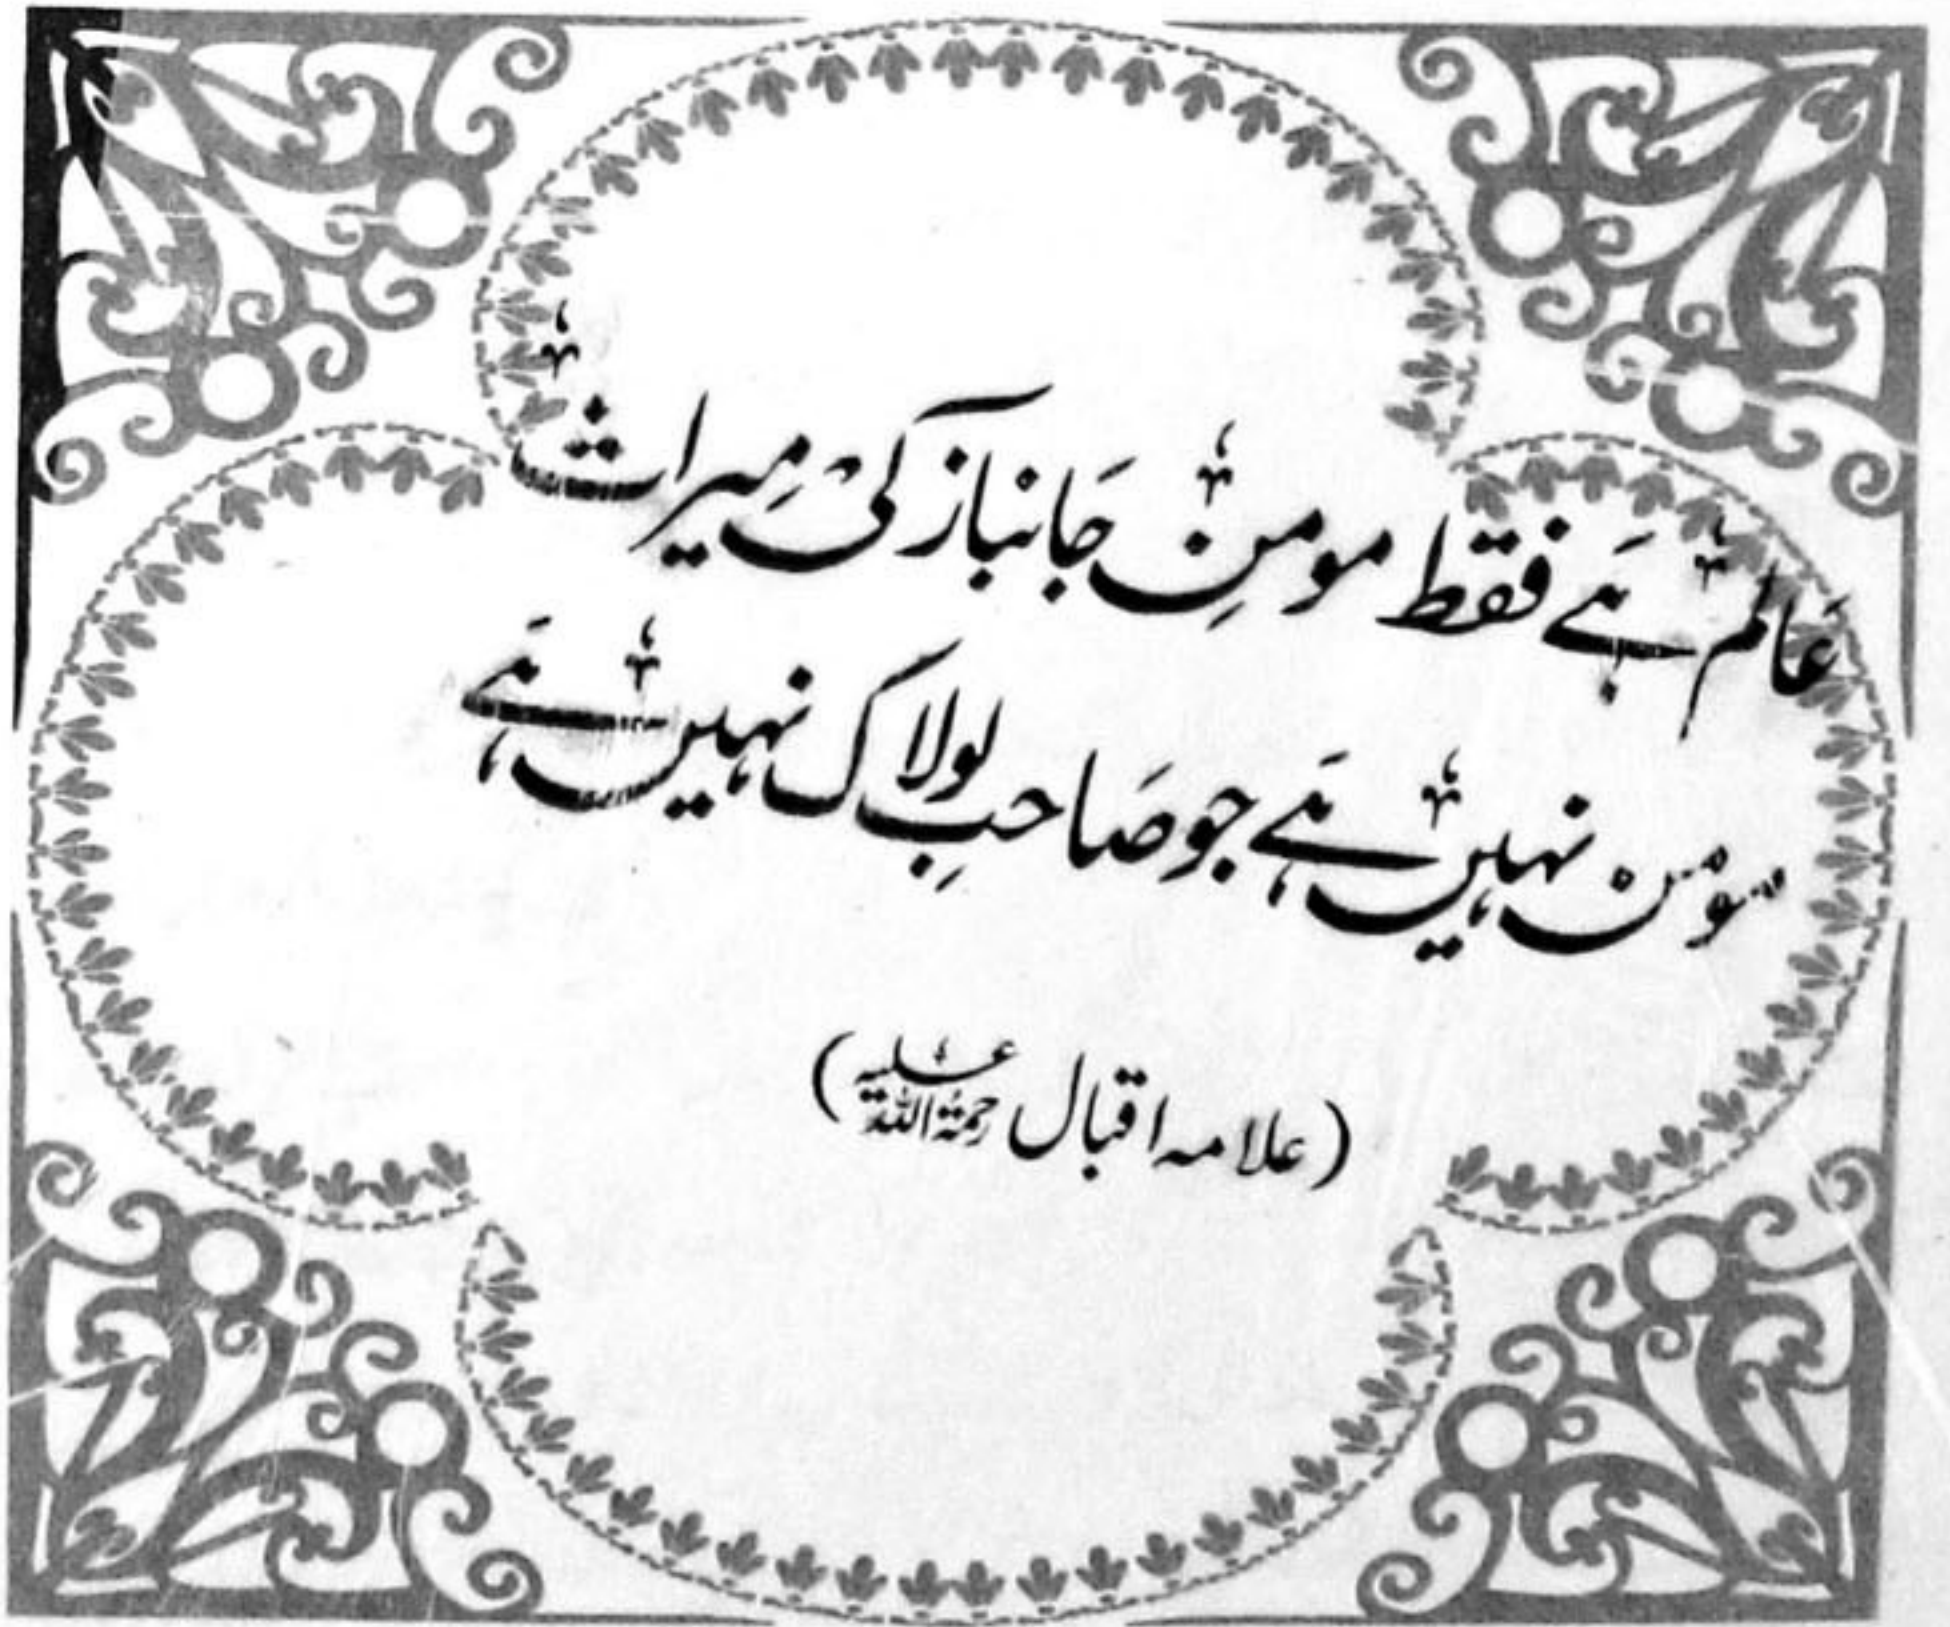 عالم ہے فقط مومنِ جانباز کی میراث
مومن نہیں ہے جو صاحبِ لولاک نہیں ہے
(علامہ اقبال رحمۃ اللہ علیہ)